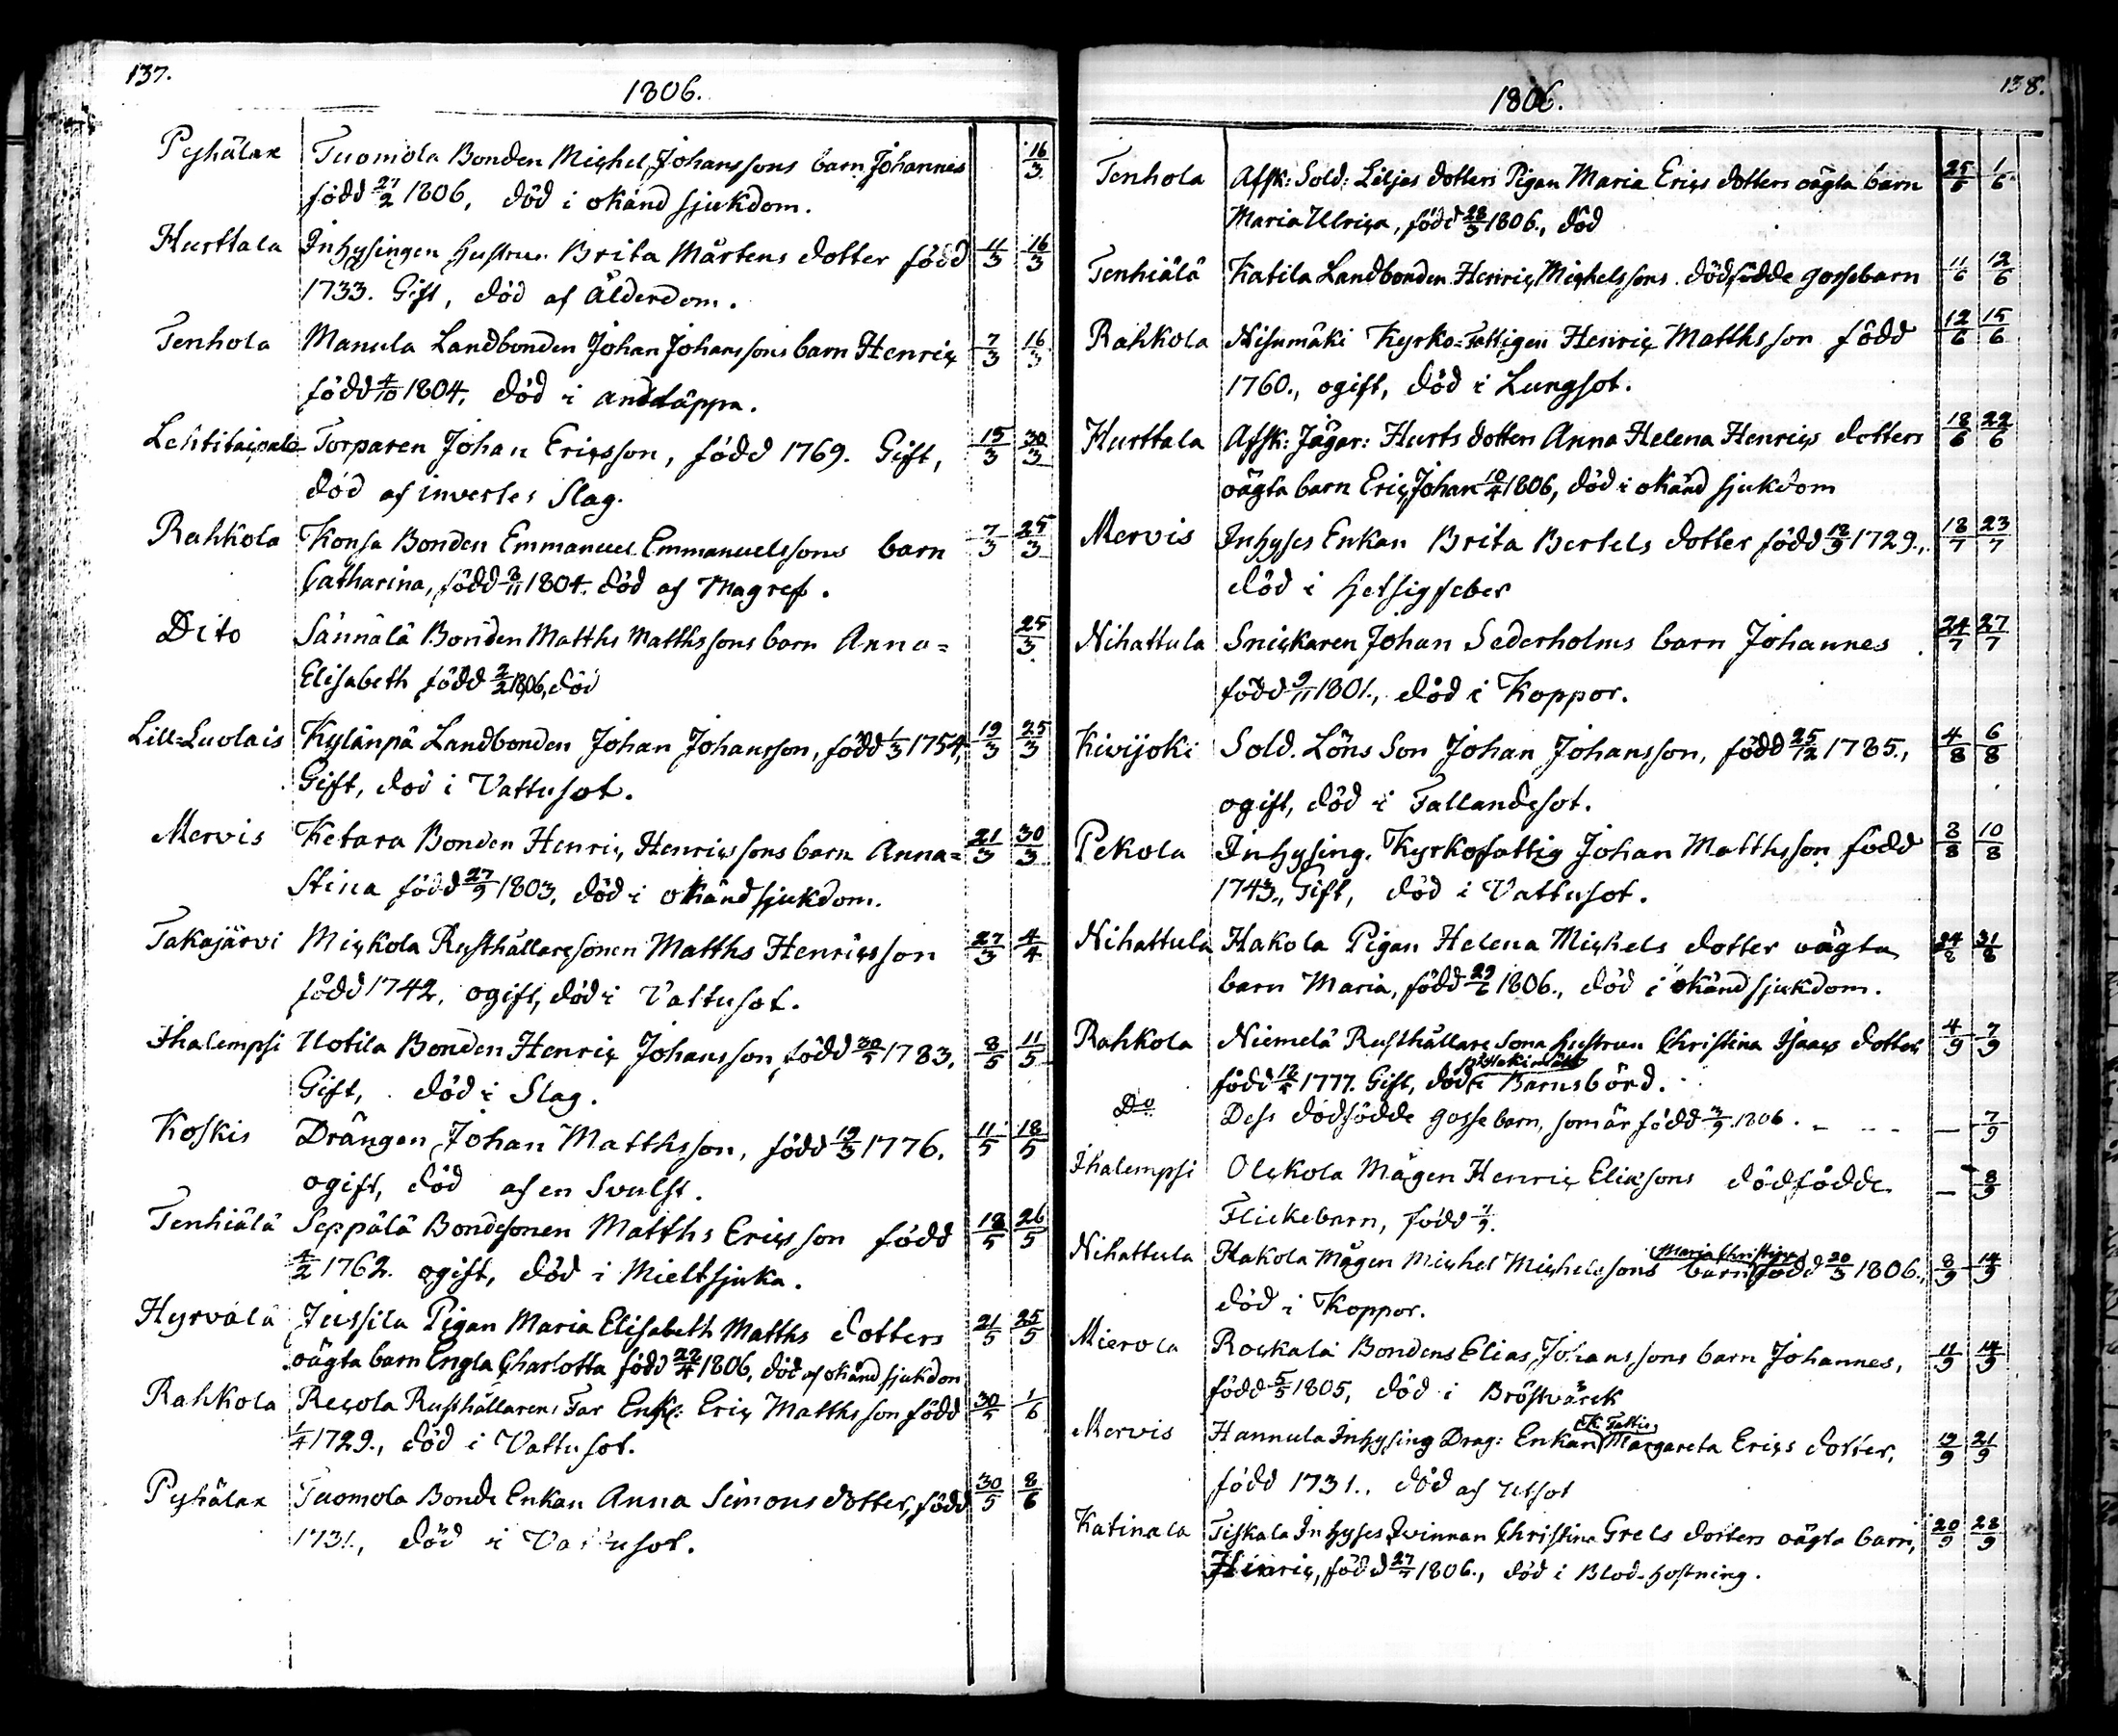 137.
1806.
Pyhälax Tuomola Bonden Michel Johanssons barn Johannes 16/3
född 27/2 1806, död i okänd sjukdom.
Hurttala Inhysingen hustrun Brita Mårtens dotter född 11/3 16/3
1733. Gift, död af Ålderdom.
Tenhola Manula Landbonden Johan Johanssons barn Henric 7/3 16/3
född 4/10 1804. död i andtäppa.
Lehtitaipale Torparen Johan Ericsson, född 1769. Gift, 15/3 30/3
död af invertes Slag.
Rahkola Konsa Bonden Emmanuel Emmanuelssons barn 7/3 25/3
Catharina, född 2/11 1804. död af Magref.
Dito Sännälä Bonden Matths Matthssons barn Anna= 25/3
Elisabeth född 2/2 1806, död
Lill=Luolais Kylänpä Landbonden Johan Johansson, född 1/3 1754, 19/3 25/3
Gift, död i Vattusot.
Mervis Ketara Bonden Henric Henricssons barn Anna= 21/3 30/3
Stina född 27/9 1803, död i okänd sjukdom.
Takajärvi Mickola Rusthållaresonen Matths Henricsson 27/3 4/4
född 1742, ogift, död i Vattusot.
Ihalempsi Uotila Bonden Henric Johansson, född 30/5 1783. 8/5 11/5
Gift, död i Slag.
Koskis Drängen Johan Matthsson, född 19/3 1776. 11/5 18/5
ogift, död af en Svulst.
Tenhiälä Seppälä Bondesonen Matths Ericsson född 18/5 26/5
4/2 1762. ogift, död i Mieltsjuka.
Hyrvälä Jussila Pigan Maria Elisabeth Matths dotters 21/5 25/5
oägta barn Engla Charlotta född 22/4 1806, död af okänd sjukdom
Rahkola Recola Rusthållarens Far Enkl: Eric Matthsson född 30/5 1/6
1/4 1729., död i Vattusot.
Pyhälax Tuomola Bonde Enkan Anna Simons dotter, född 30/5 8/6
1731, död i Vattusot.
138.
1806.
Tenhola Afsk: Sold: Liljas dotters Pigan Maria Erics dotters oägta barn 25/5 1/6
Maria Ulrica, född 28/3 1806., död
Tenhiälä Katila Landbonden Henric Michelssons dödfödde gossebarn 11/6 12/6
Rahkola Kyrko=Fattigen Henric Matthsson född 12/6 15/6
1760., ogift, död i Lungsot.
Hurttala Afsk: Jägar: Hurts dotters Anna Helena Henrics dotters 18/6 22/6
oägta barn Eric Johan 1806, död i okänd sjukdom
Mervis Inhyses Enkan Brita Bertels dotter född 18/9 1729., 18/7 23/7
död i hetsigfeber
Nihattula Snickaren Johan Sederholms barn Johannes 24/7 27/7
född 9/11 1801., död i Koppor.
Kivijoki Sold. Löns Son Johan Johansson, född 25/12 1785., 4/8 6/8
ogift, död i Fallandesot.
Pekola Inhysing. Kyrkofattig Johan Matthsson född 8/8 10/8
1743., Gift, död i Vattusot.
Nihattula Hakola Pigan Helena Michels dotter oägta 24/8 31/8
barn Maria, född 29/6 1806., död i okänd sjukdom.
Rahkola Niemelä Rusthållare Sona hustrun Christina Isaacs dotter 4/9 7/9
född 1777. Gift, död i Barnsbörd.
Do Dess dödfödde gossebarn, som är född 3/9 1806. 7/9
Ihalempsi Olckola Mågen Henric Eliæsons dödfödde 8/9
Flickebarn, född 7/9.
Nihattula Hakola Mågen Michel Michelssons barn Maria Christina född 20/3 1806., 8/9 14/9
död i Koppor.
Mierola Rockala Bondens Elias Johanssons barn Johannes, 11/9 14/9
född 5/5 1805, död i Bröstvärck
Mervis Hannula Inhysing Drag: Enkan K. Fattig Margareta Erics dotter, 19/9 21/9
född 1731., död af retsot
Katinala Tiskala Inhyses Qvinnan Christina Grels dotters oägta barn, 20/9 28/9
Hinric, född 27/7 1806., död i Blod-hostning.